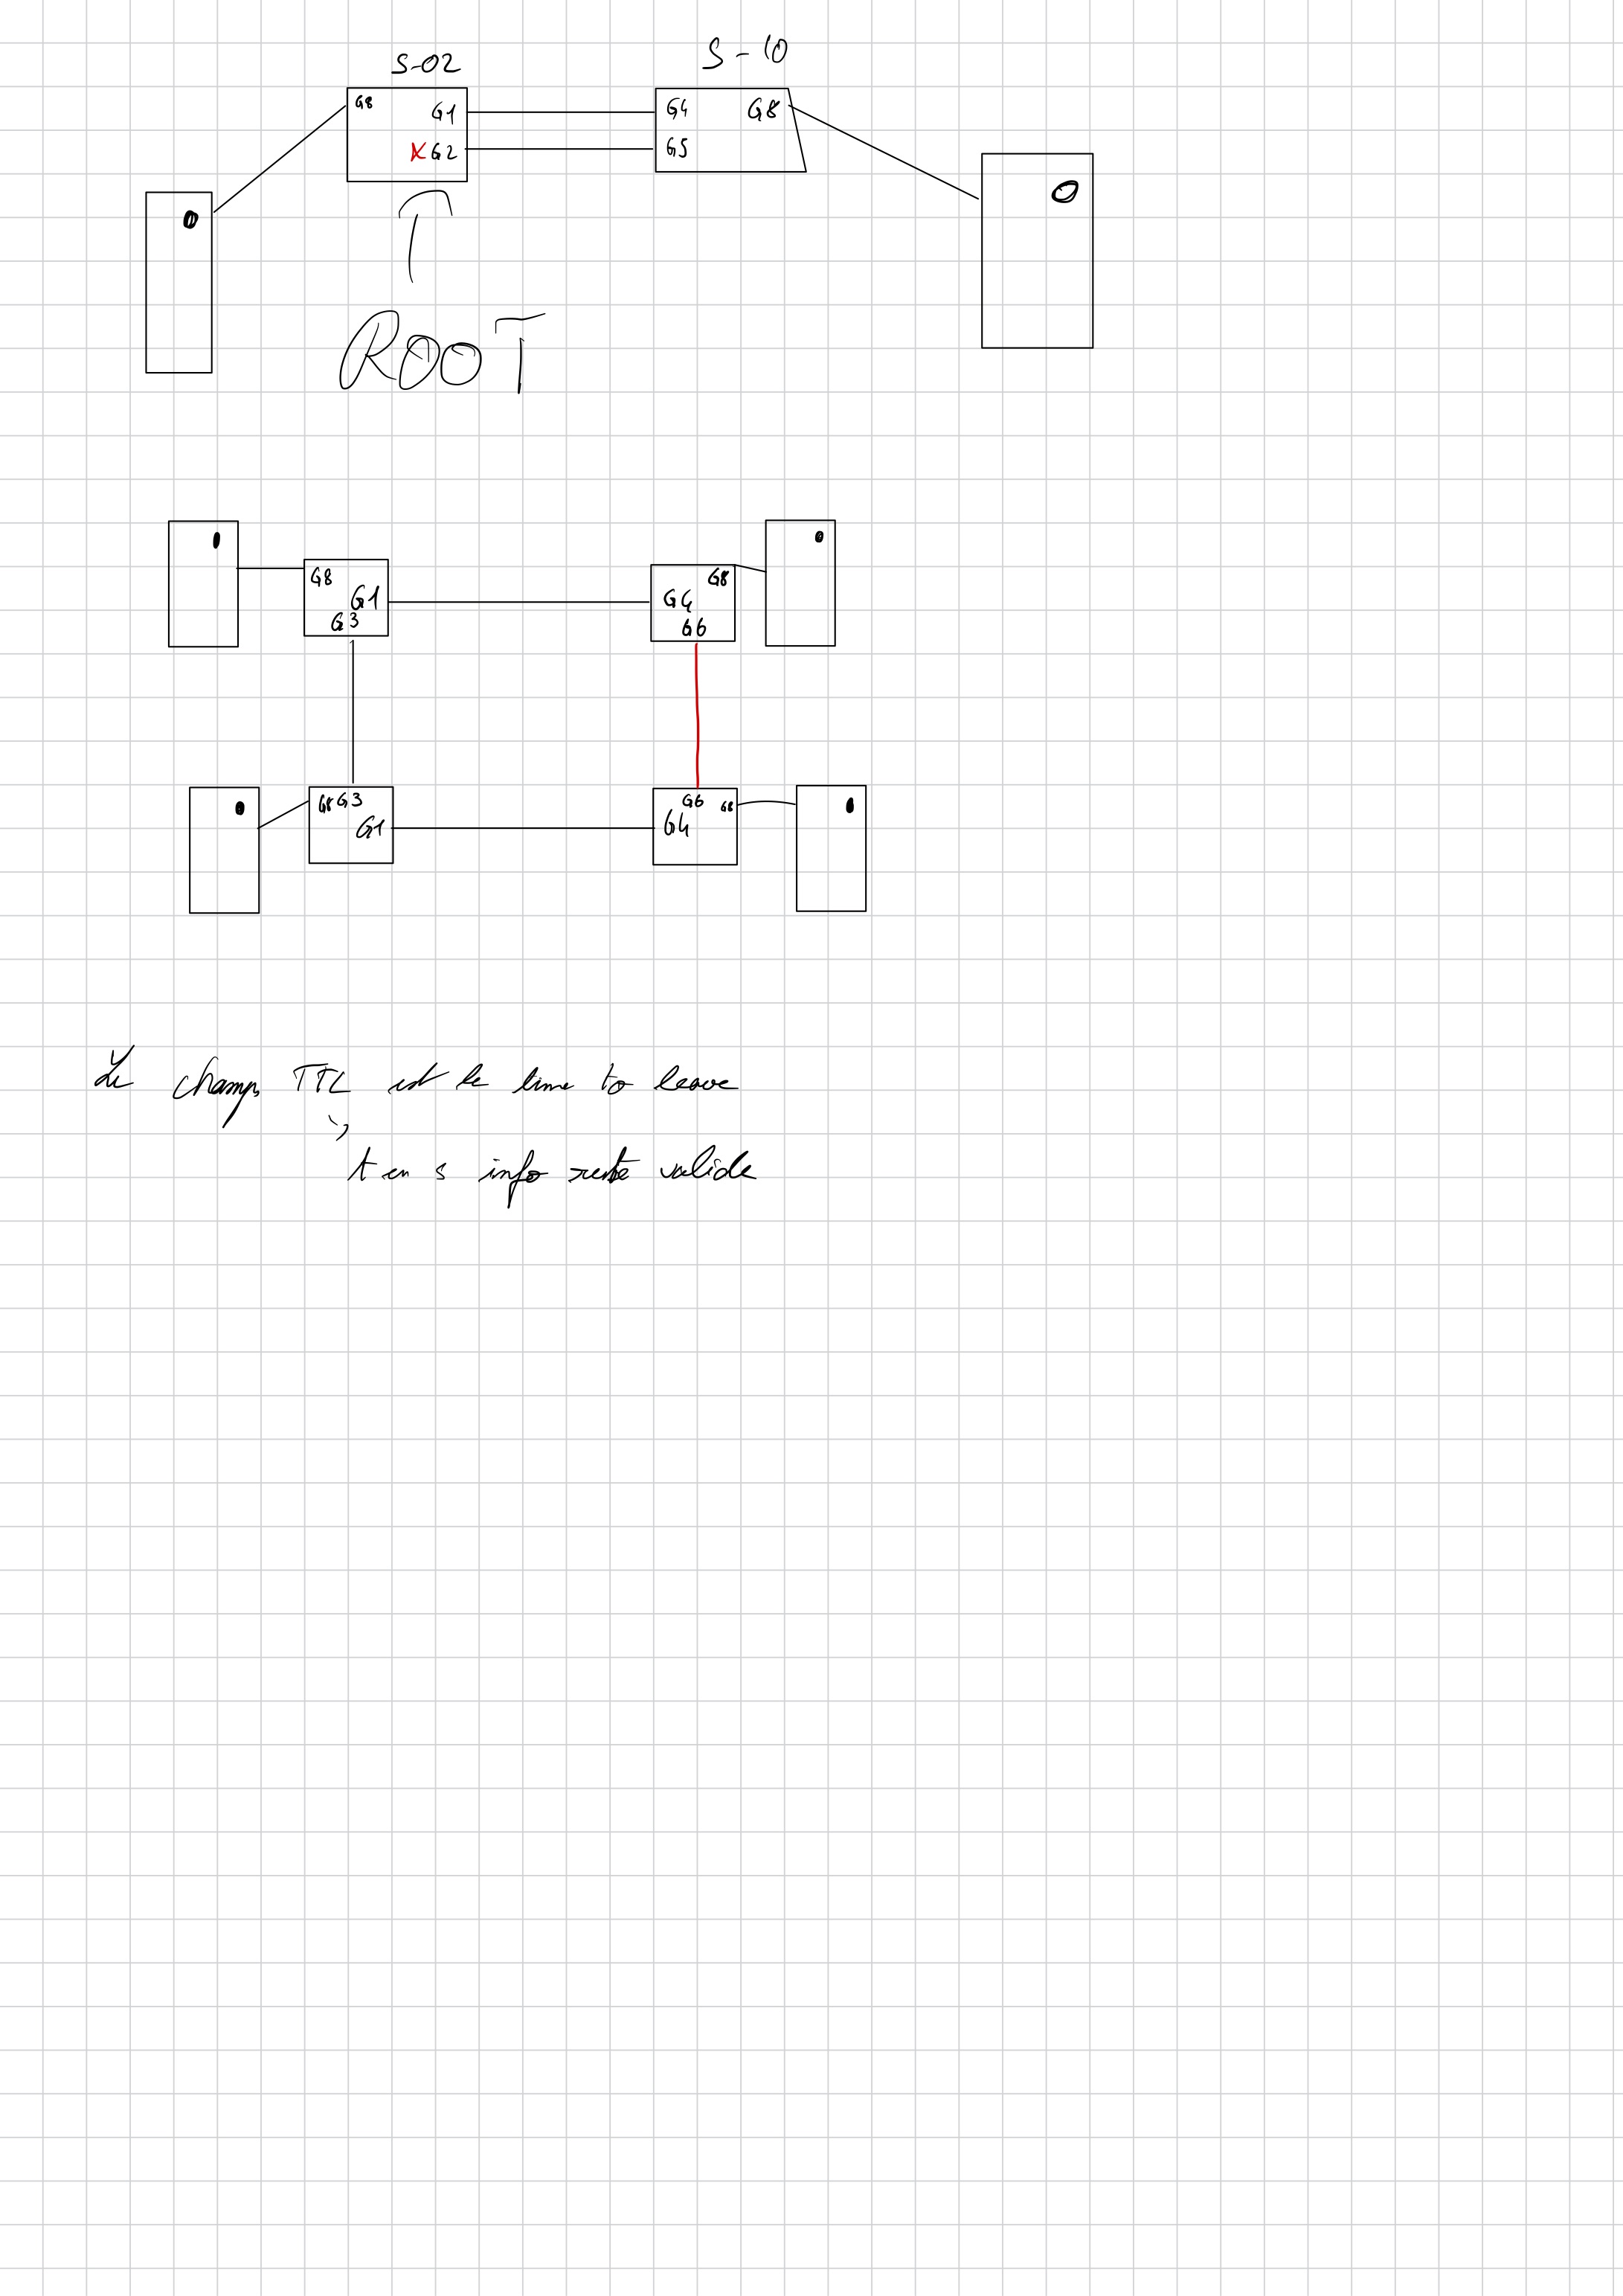 S-02
S-10
G8
G1
G4
G8
X G2
G5
ROOT
G8
G1
G3
G4
G8
G6
G8 G3
G1
G6
G8
G4
Le champs TTL est le time to leave
t en s info reste valide